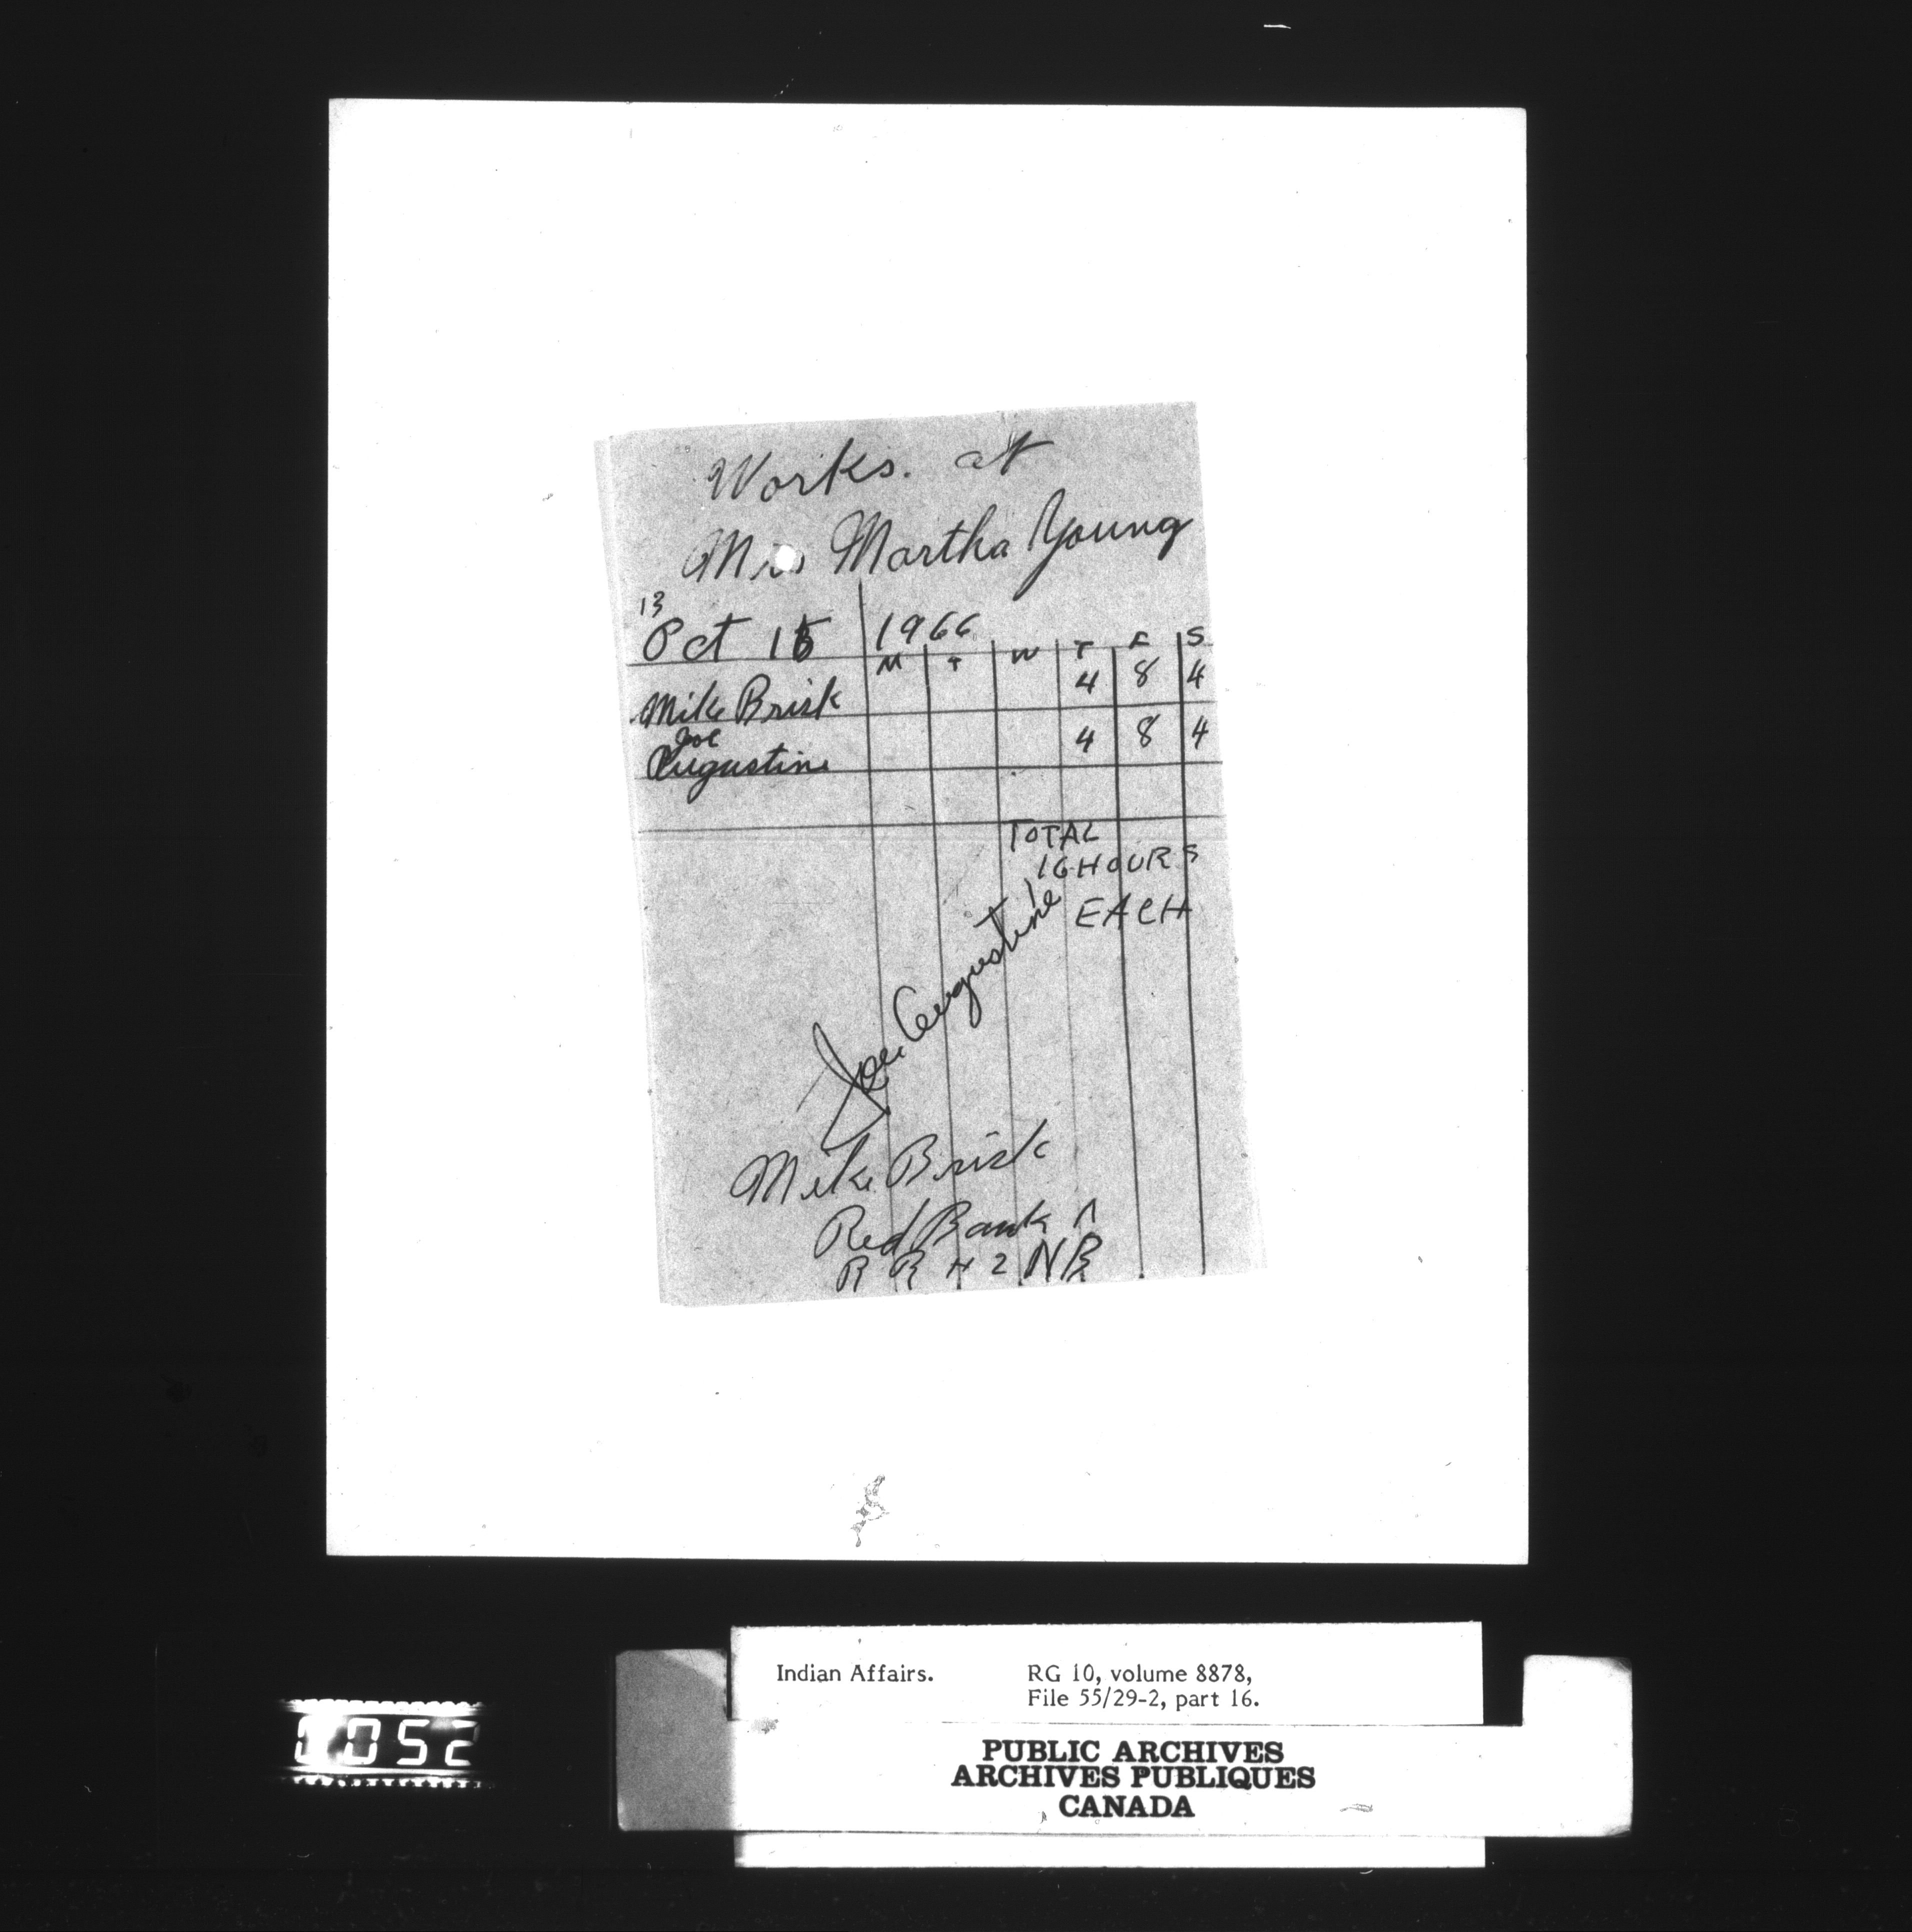 Works. at
Mrs Martha Young
13
Oct 15 1966
M T W T F S
Mike Brisk 4 8 4
Joe
Augustine 4 8 4
TOTAL
16 HOURS
EACH
Joe Augustine
Mike Brisk
Red Bank
R R # 2 NB
Indian Affairs. RG 10, volume 8878,
File 55/29-2, part 16.
PUBLIC ARCHIVES
ARCHIVES PUBLIQUES
CANADA
052